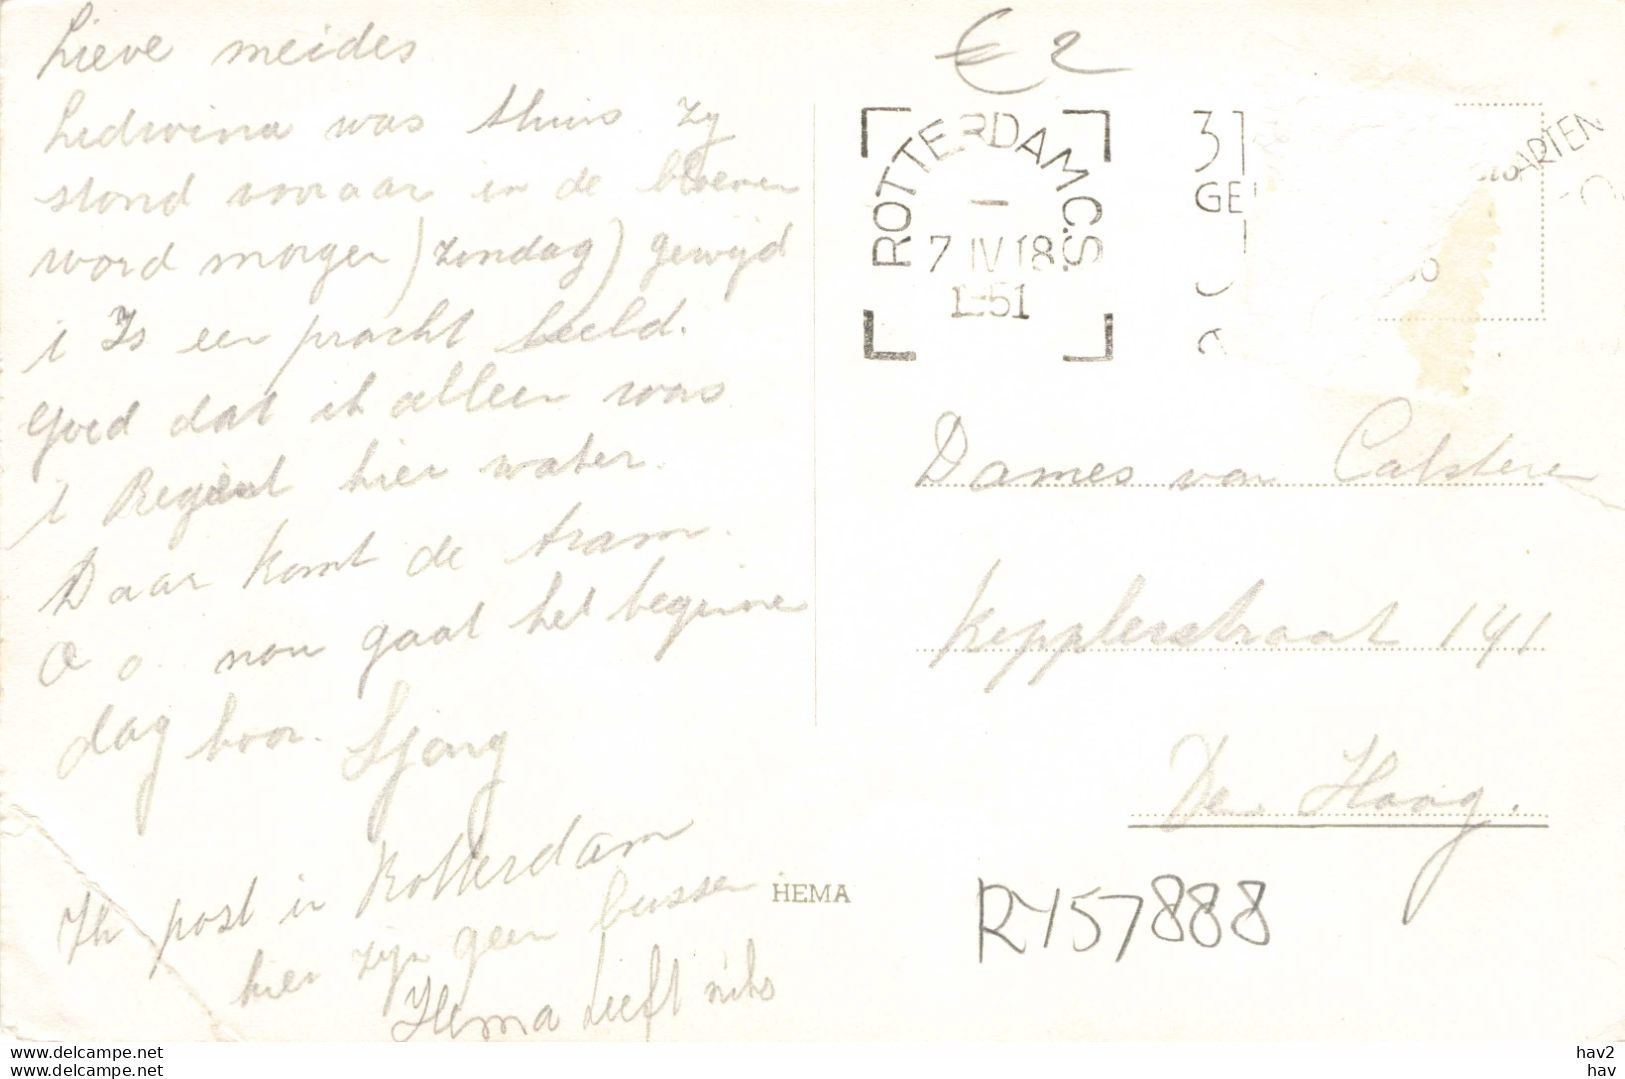 Lieve meides
Liedwina was thuis. Zy
stond vooraar in de bloemen
word morgen) zondag) gewijd
t Is een pracht beeld.
Goed dat ik alleen was
t Regent hier water.
Daar komt de tram.
O o. nou gaat het beginne
dag hoor. Sjang
Ik post in Rotterdam
hier zijn geen bussen
Hema heeft niks
HEMA
€ 2
ROTTERDAM C.S.
7 IV 18
1951
31
GE
ARTEN
Dames van Calsteren
Kepplerstraat 141
Den Haag.
RY57888
delcampe.net
delcampe.net
hav2
hav